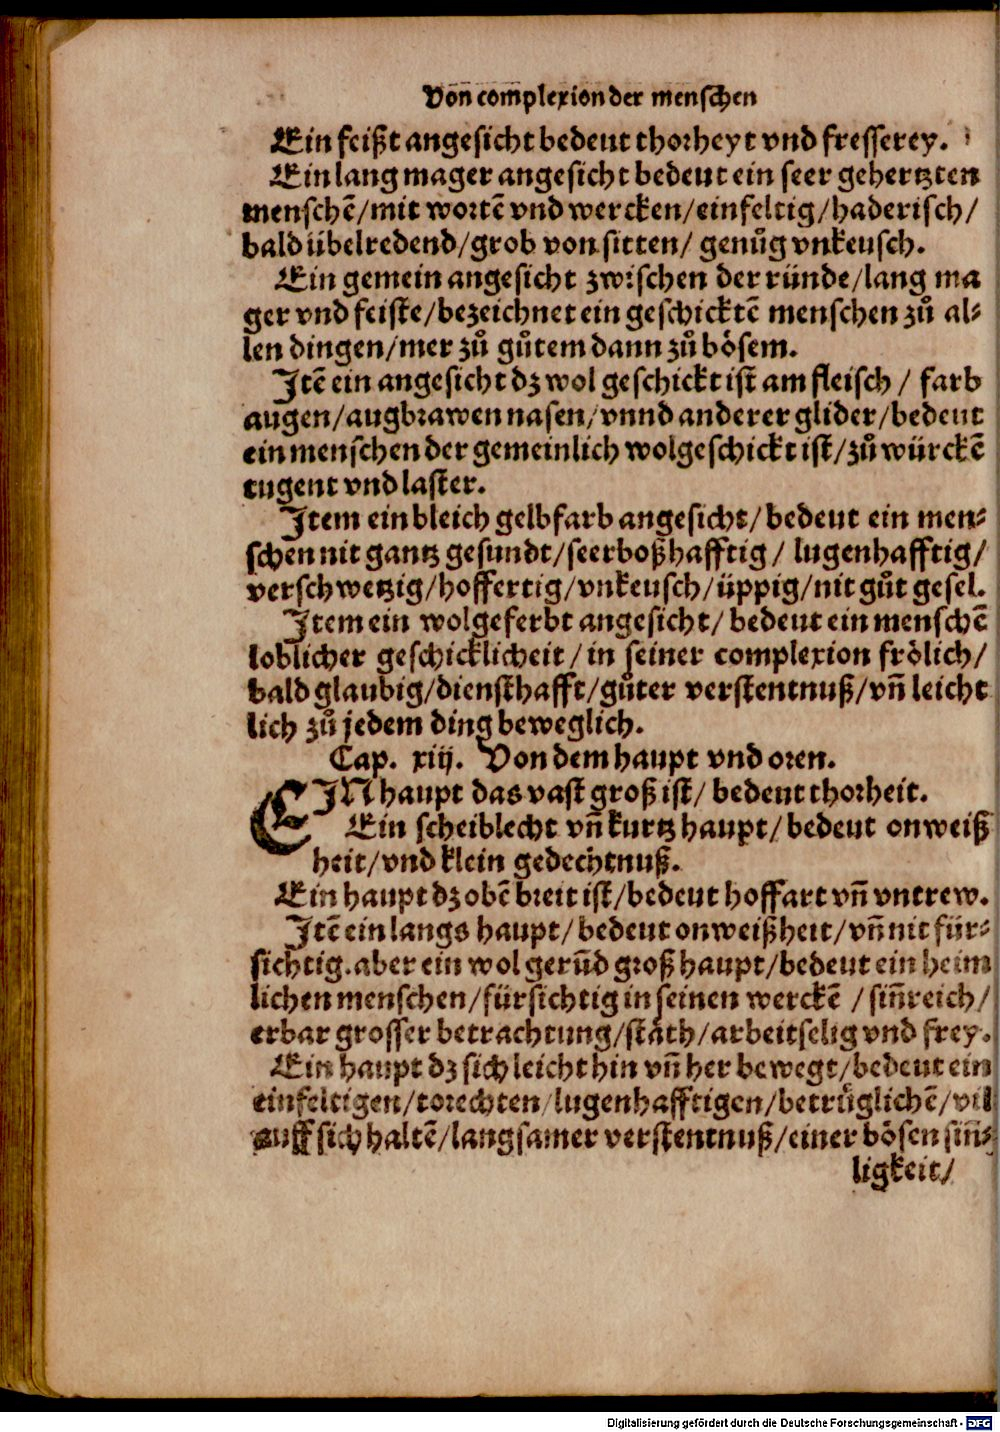 Von complexion der menschen
Ein feißt angesicht bedeut thorheyt vnd fresserey.
Ein lang mager angesicht bedeut ein seer gehertzten
menschē/mit wortē vnd wercken/einfeltig/haderisch/
bald übelredend/grob von sitten/ genůg vnkeusch.
Ein gemein angesicht zwischen der ründe/lang ma
ger vnd feiste/bezeichnet ein geschicktē menschen zů al-
len dingen/mer zů gůtem dann zů bösem.
Jtē ein angesicht dz wol geschickt ist am fleisch / farb
augen/augbrawen nasen/vnnd anderer glider/bedeut
ein menschen der gemeinlich wolgeschickt ist/zů würckē
tugent vnd laster.
Jtem ein bleich gelbfarb angesicht/bedeut ein men-
schen nit gantz gesundt/seerboßhafftig/ lugenhafftig/
verschwetzig/hoffertig/vnkeusch/üppig/nit gůt gesel.
Jtem ein wolgeferbt angesicht/ bedeut ein menschē
loblicher geschicklicheit/in seiner complexion frölich/
bald glaubig/diensthafft/gůter verstentnuß/vñ leicht
lich zů jedem ding beweglich.
Cap. xiij. Von dem haupt vnd oren.
EJN haupt das vast groß ist/ bedeut thorheit.
Ein scheiblecht vñ kurtz haupt/bedeut onweiß
heit/vnd klein gedechtnuß.
Ein haupt dz obē breit ist/bedeut hoffart vñ vntrew.
Jtē ein langs haupt/bedeut onweißheit/vñ nit für-
sichtig.aber ein wol gerūd groß haupt/bedeut ein heim
lichen menschen/fürsichtig in seinen werckē /siñreich/
erbar grosser betrachtung/stäth/arbeitselig vnd frey.
Ein haupt dz sich leicht hin vñ her bewegt/bedeut ein
einfeltigen/torechten/lugenhafftigen/betrüglichē/vil
auff sich haltē/langsamer verstentnuß/einer bösen siñ-
ligkeit/
Digitalisierung gefördert durch die Deutsche Forschungsgemeinschaft - DFG